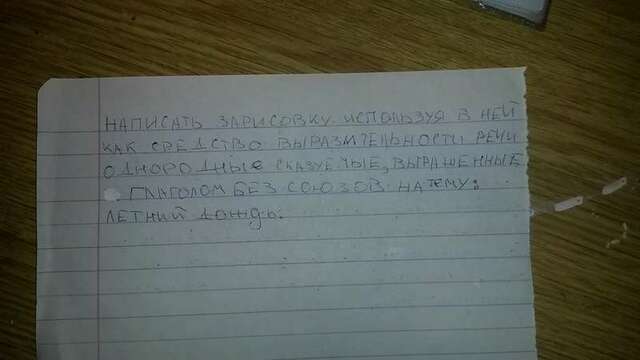 НАПИСАТЬ ЗАРИСОВКУ ИСПОЛЬЗУЯ В НЕЙ
КАК СРЕДСТВО ВЫРАЗИТЕЛЬНОСТИ РЕЧИ
ОДНОРОДНЫЕ СКАЗУЕМЫЕ, ВЫРАЖЕННЫЕ
ГЛАГОЛОМ БЕЗ СОЮЗОВ НА ТЕМУ:
ЛЕТНИЙ ДОЖДЬ.